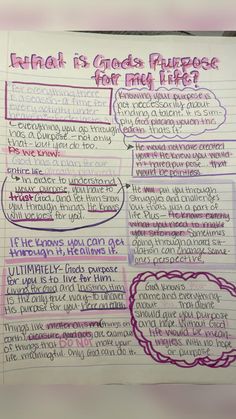 What is Gods Purpose
for my life?
For everything there
is a season- a time for
every activity under
Knowing your purpose is
not necessarily about
finding a talent. It is sim-
ply God placing you on this
earth. That's it.
- everything you go through
has a purpose - not only
that - but you do too.
As we know:
God has a plan through
entire life
→ In order to understand
your purpose, you have to
trust God, and let Him show
you through things He knows
will be best for you.
→ He would not have created
you if He knew you would
- that
would be pointless.
→ He will put you through
struggles and challenges
but that's just a part of
life. Plus - He knows exactly
what you need to make
you stronger.
going through a hard sit-
uation can change some-
ones perspective.
If He knows you can get
through it, He allows it.
ULTIMATELY - God's purpose
for you is to live for Him.
Living for God and trusting Him
is the only true way to uncover
His purpose for you here on earth
Things like materialistic things on
earth, pleasure, and are examples
of things that DO NOT make your
life meaningful. Only God can do it.
God knows
name and everything
about that alone
should give you purpose
and hope. Without God,
life would be mean-
ingless with no hope
or purpose